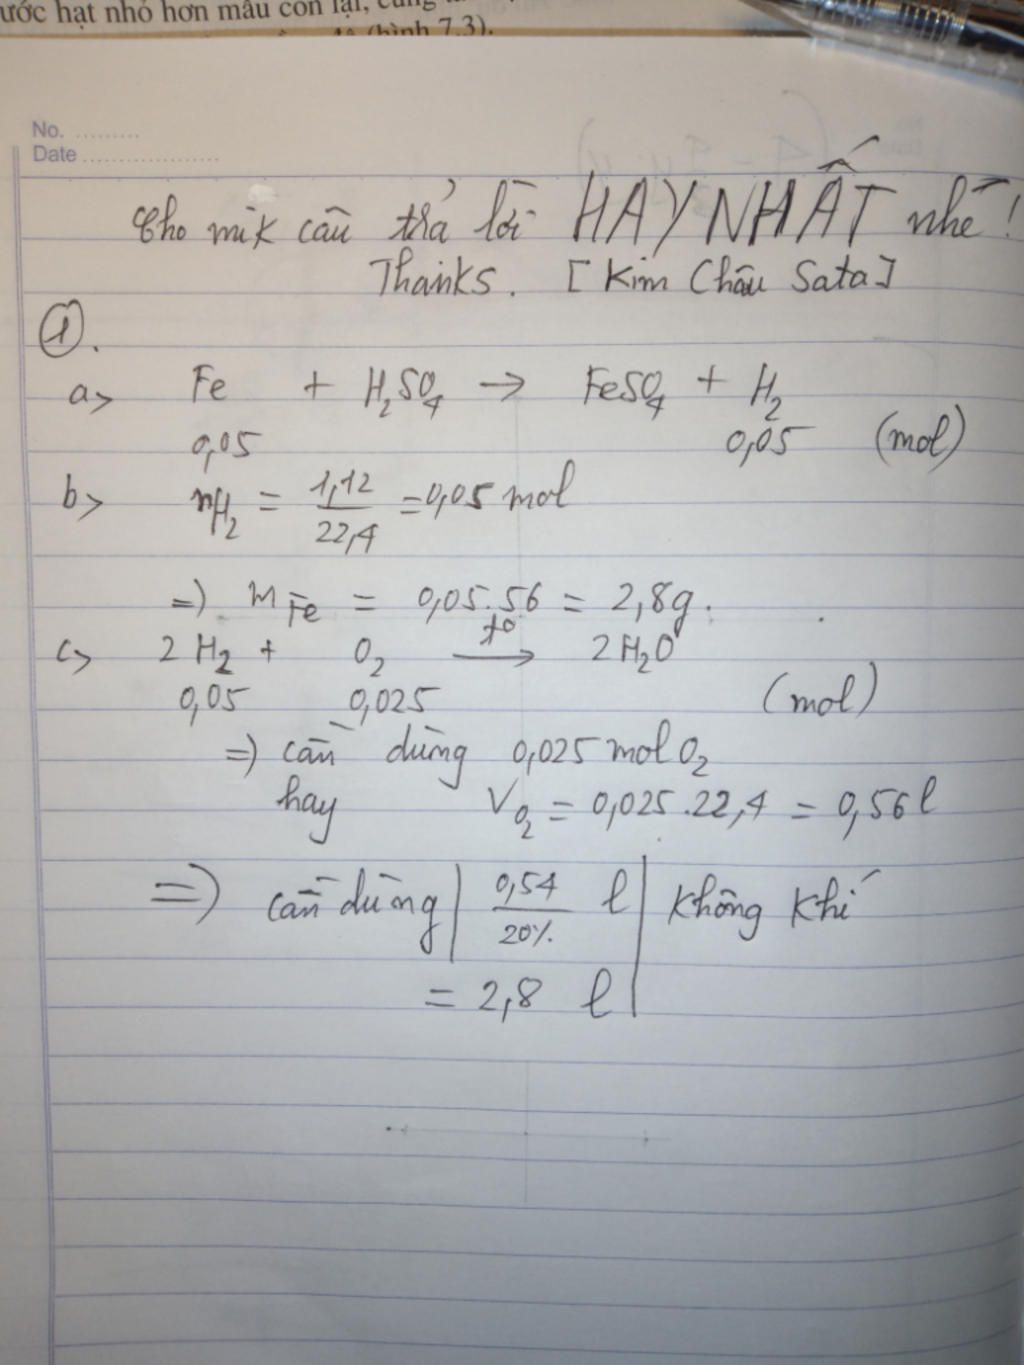 ước hạt nhỏ hơn mẫu còn lại,
(hình 7.3).
No. .........
Date ...................
Cho mik câu trả lời HAY NHẤT nhé!
Thanks. [Kim Châu Sata]
①.
a> Fe + H₂SO₄ → FeSO₄ + H₂
0,05 0,05 (mol)
b> nH₂ = 1,12/22,4 = 0,05 mol
=> mFe = 0,05.56 = 2,8g.
c> 2H₂ + O₂ —t°→ 2H₂O
0,05 0,025 (mol)
=> cần dùng 0,025 mol O₂
hay V O₂ = 0,025.22,4 = 0,56 l
=> cần dùng | 0,54/20% l | không khí
= 2,8 l